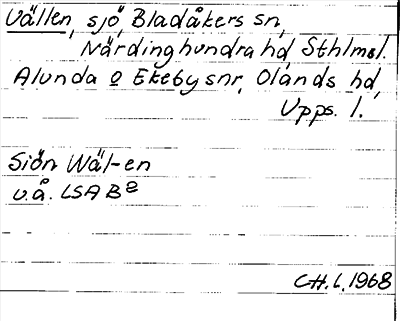 Vällen, sjö, Bladåkers sn,
Närdinghundra hd, Sthlms l.
Alunda o Ekeby snr, Olands hd,
Upps. l.
Siön Wäl-en
u.å. LSA B2
CH. l. 1968